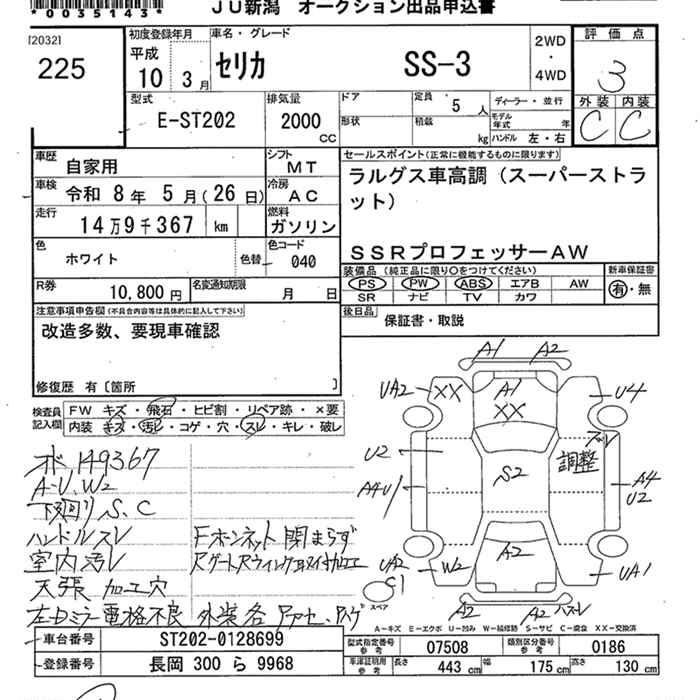 *0035143*
JU新潟 オークション出品申込書
[2032]
225
初度登録年月
平成
10 3月
車名・グレード
セリカ SS-3
2WD
・
4WD
評価点
3
外装 内装
C C
型式
E-ST202
排気量
2000
CC
ドア
形状
定員 5人
積載 kg
ディーラー・並行
モデル年式 年
ハンドル 左・右
車歴 自家用
シフト MT
車検 令和 8年 5月(26日)
冷房 AC
走行 14万9千367 km
燃料 ガソリン
色 ホワイト
色替
色コード 040
R券 10,800円
名変通知期限 月 日
セールスポイント(正常に機能するものに限ります)
ラルグス車高調(スーパーストラ
ット)
SSRプロフェッサーAW
装備品(純正品に限り○をつけてください)
PS PW ABS エアB AW
SR ナビ TV カワ
新車保証書
有・無
後日品 保証書・取説
注意事項申告欄(不具合内容等は具体的に記入して下さい)
改造多数、要現車確認
修復歴 有〔箇所 〕
検査員
記入欄
FW キズ・飛石・ヒビ割・リペア跡・×要
内装 キズ・汚レ・コゲ・穴・スレ・キレ・破レ
149367
A-U.W2
下回り S、C
ハンドルスレ
室内汚レ
天張 加工穴
左Dミラー電格不良
Fボンネット閉まらず
A1 A2
UA2 XX A1 XX U4
U2 S2 調整
A4U A4 U2
UA2 W2 A2 UA1
C1
スペア
A2 A2
A-キズ E-エクボ U-凹み W-補修跡 S-サビ C-腐食 XX-交換済
車台番号 ST202-0128699
登録番号 長岡 300 ら 9968
型式指定番号 参考 07508
類別区分番号 参考 0186
車庫証明用 参考 長さ 443 cm 幅 175 cm 高さ 130 cm